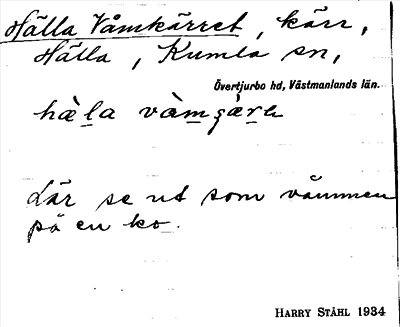 Hälla Våmkärret, kärr,
Hälla, Kumla sn,
Övertjurbo hd, Västmanlands län.
hä̀la vàm
Lär se ut som våmmen
på en ko.
HARRY STÅHL 1934